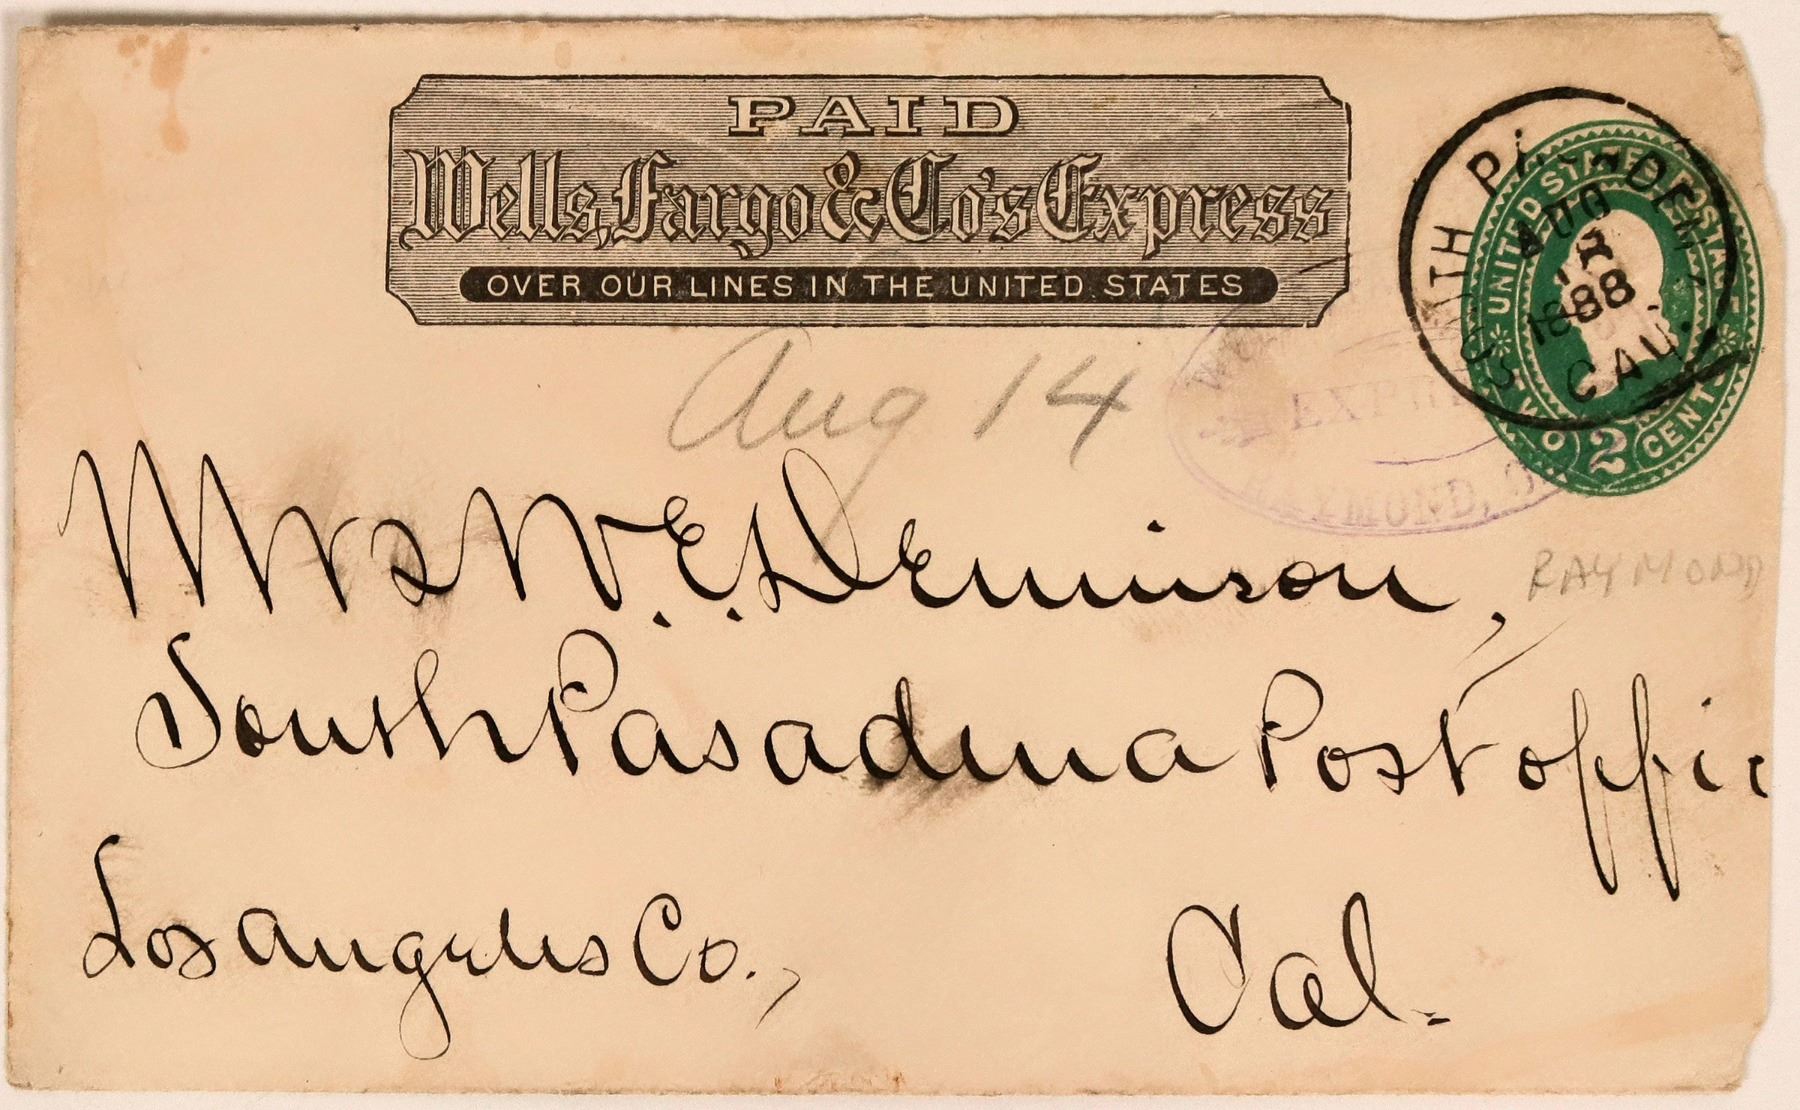 PAID
Wells, Fargo & Co's Express
OVER OUR LINES IN THE UNITED STATES
SOUTH PASADENA
AUG
1888
CAL.
UNITED STATES POSTAGE
TWO 2 CENTS
Aug 14
EXPRESS
RAYMOND,
Mrs W. E. Dennison,
RAYMOND
South Pasadena Post offic
Los Angeles Co.,
Cal.